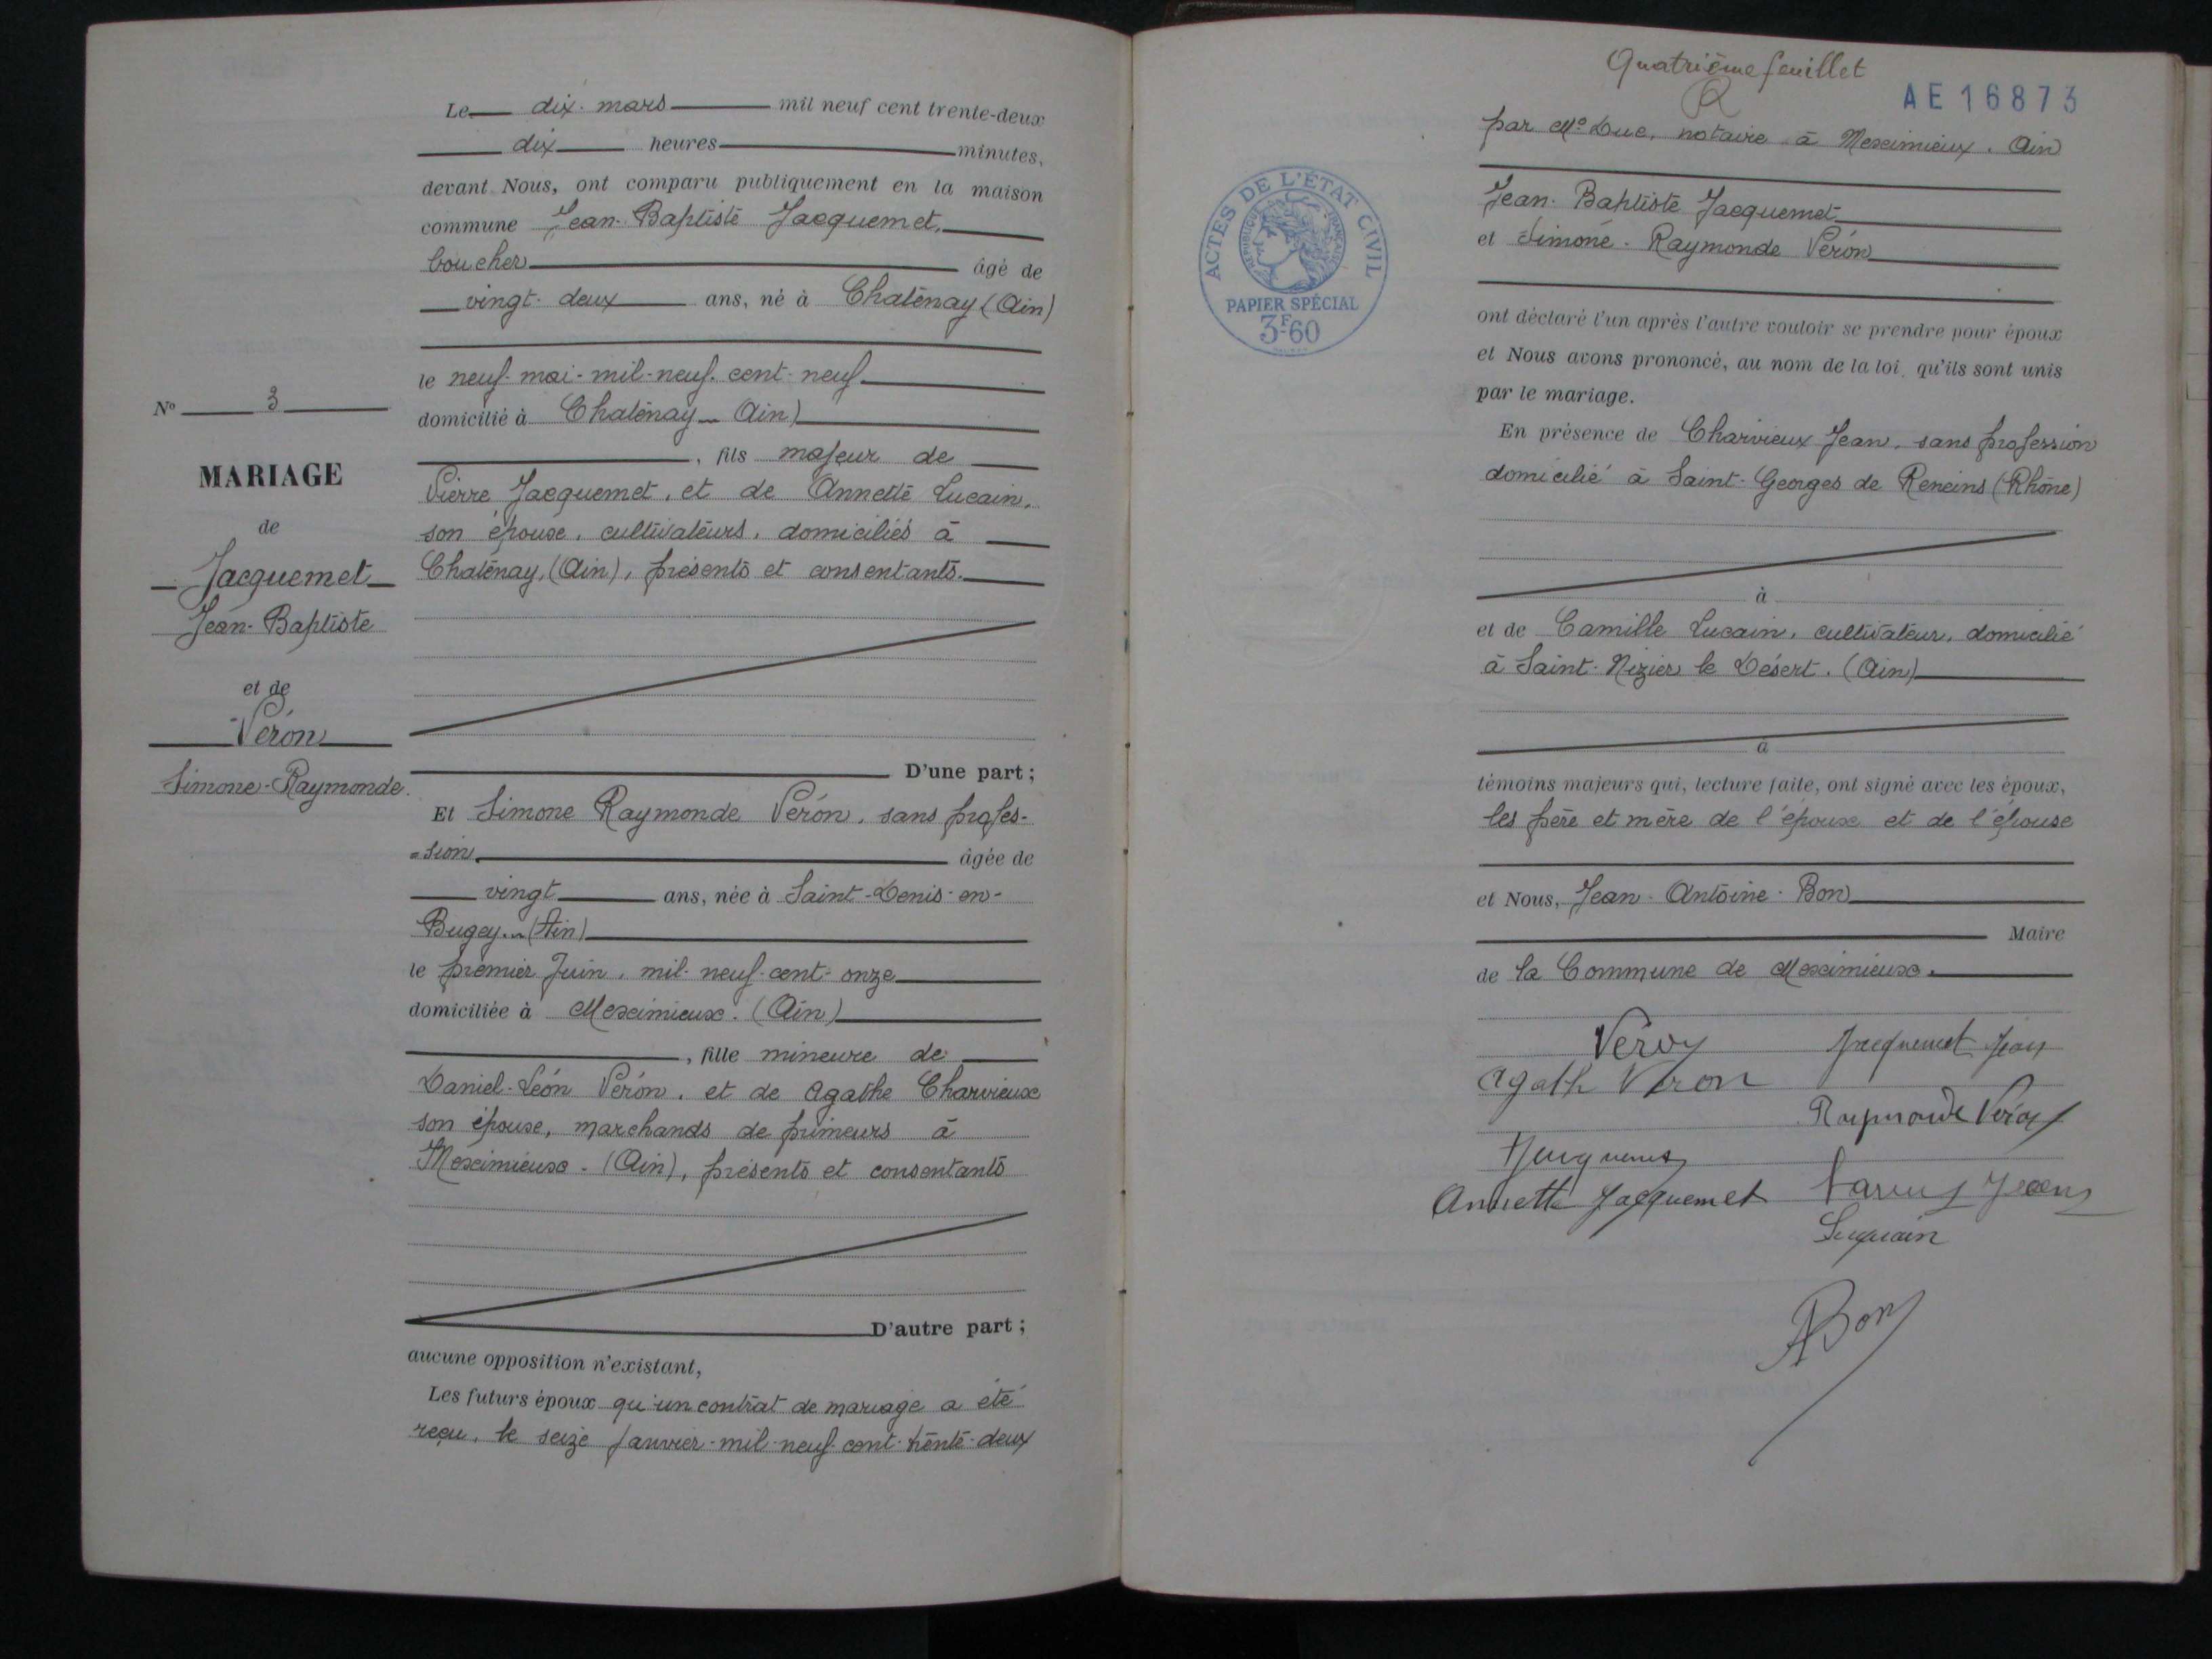 Le dix mars mil neuf cent trente-deux
dix heures minutes,
devant Nous, ont comparu publiquement en la maison
commune Jean-Baptiste Jacquemet,
boucher âgé de
vingt-deux ans, né à Chatenay (Ain)
le neuf mai-mil-neuf-cent-neuf
domicilié à Chatenay Ain)
, fils majeur de
Pierre Jacquemet, et de Annette Lucain,
son épouse, cultivateurs, domiciliés à
Chatenay, (Ain), présents et consentants.
D'une part ;
Et Simone Raymonde Véron, sans profes-
-sion. âgée de
vingt ans, née à Saint-Denis-en-
Bugey (Ain)
le premier Juin, mil-neuf-cent-onze
domiciliée à Meximieux. (Ain)
, fille mineure de
Daniel-Léon Véron, et de Agathe Charvieux
son épouse, marchands de primeurs à
Meximieux - (Ain), présents et consentants
D'autre part ;
aucune opposition n'existant,
Les futurs époux qu'un contrat de mariage a été
reçu, le seize Janvier-mil-neuf-cent-trente-deux
N° 3
MARIAGE
de
Jacquemet
Jean-Baptiste
et de
Véron
Simone-Raymonde.
Quatrième feuillet
AE16873
par Me Duc, notaire à Meximieux. Ain
ACTES DE L'ÉTAT CIVIL
RÉPUBLIQUE FRANÇAISE
PAPIER SPÉCIAL
3F60
Jean-Baptiste Jacquemet
et Simone-Raymonde Véron
ont déclaré l'un après l'autre vouloir se prendre pour époux
et Nous avons prononcé, au nom de la loi, qu'ils sont unis
par le mariage.
En présence de Charvieux Jean, sans profession
domicilié à Saint-Georges de Reneins (Rhône)
à
et de Camille Lucain, cultivateur, domicilié
à Saint-Nizier le Désert. (Ain)
à
témoins majeurs qui, lecture faite, ont signé avec les époux,
les père et mère de l'époux et de l'épouse
et Nous, Jean-Antoine-Bon
Maire
de la Commune de Meximieux.
Véron Jacquemet Jean
Agath Véron
Raymonde Véron
Jacquemet
Annette Jacquemet Jean
Luquain
ABon